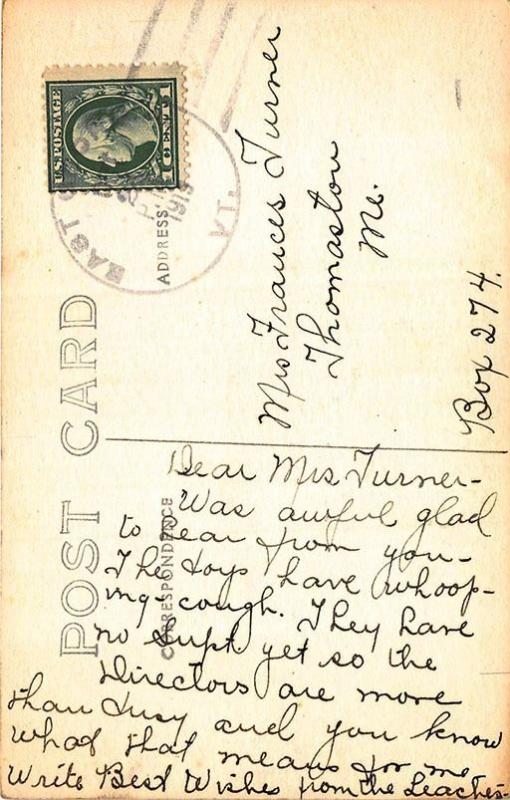 U.S. POSTAGE
1 CENT 1
EAST
VT.
1913
POST CARD
ADDRESS
Mrs Frances Turner
Thomaston
Me.
Box 274.
CORRESPONDENCE
Dear Mrs. Turner-
Was awful glad
to hear from you-
The boys have whoop-
ing-cough. They have
no Supt. yet so the
Directors are more
than busy and you know
what that means for me
Write Best Wishes from the Leaches-